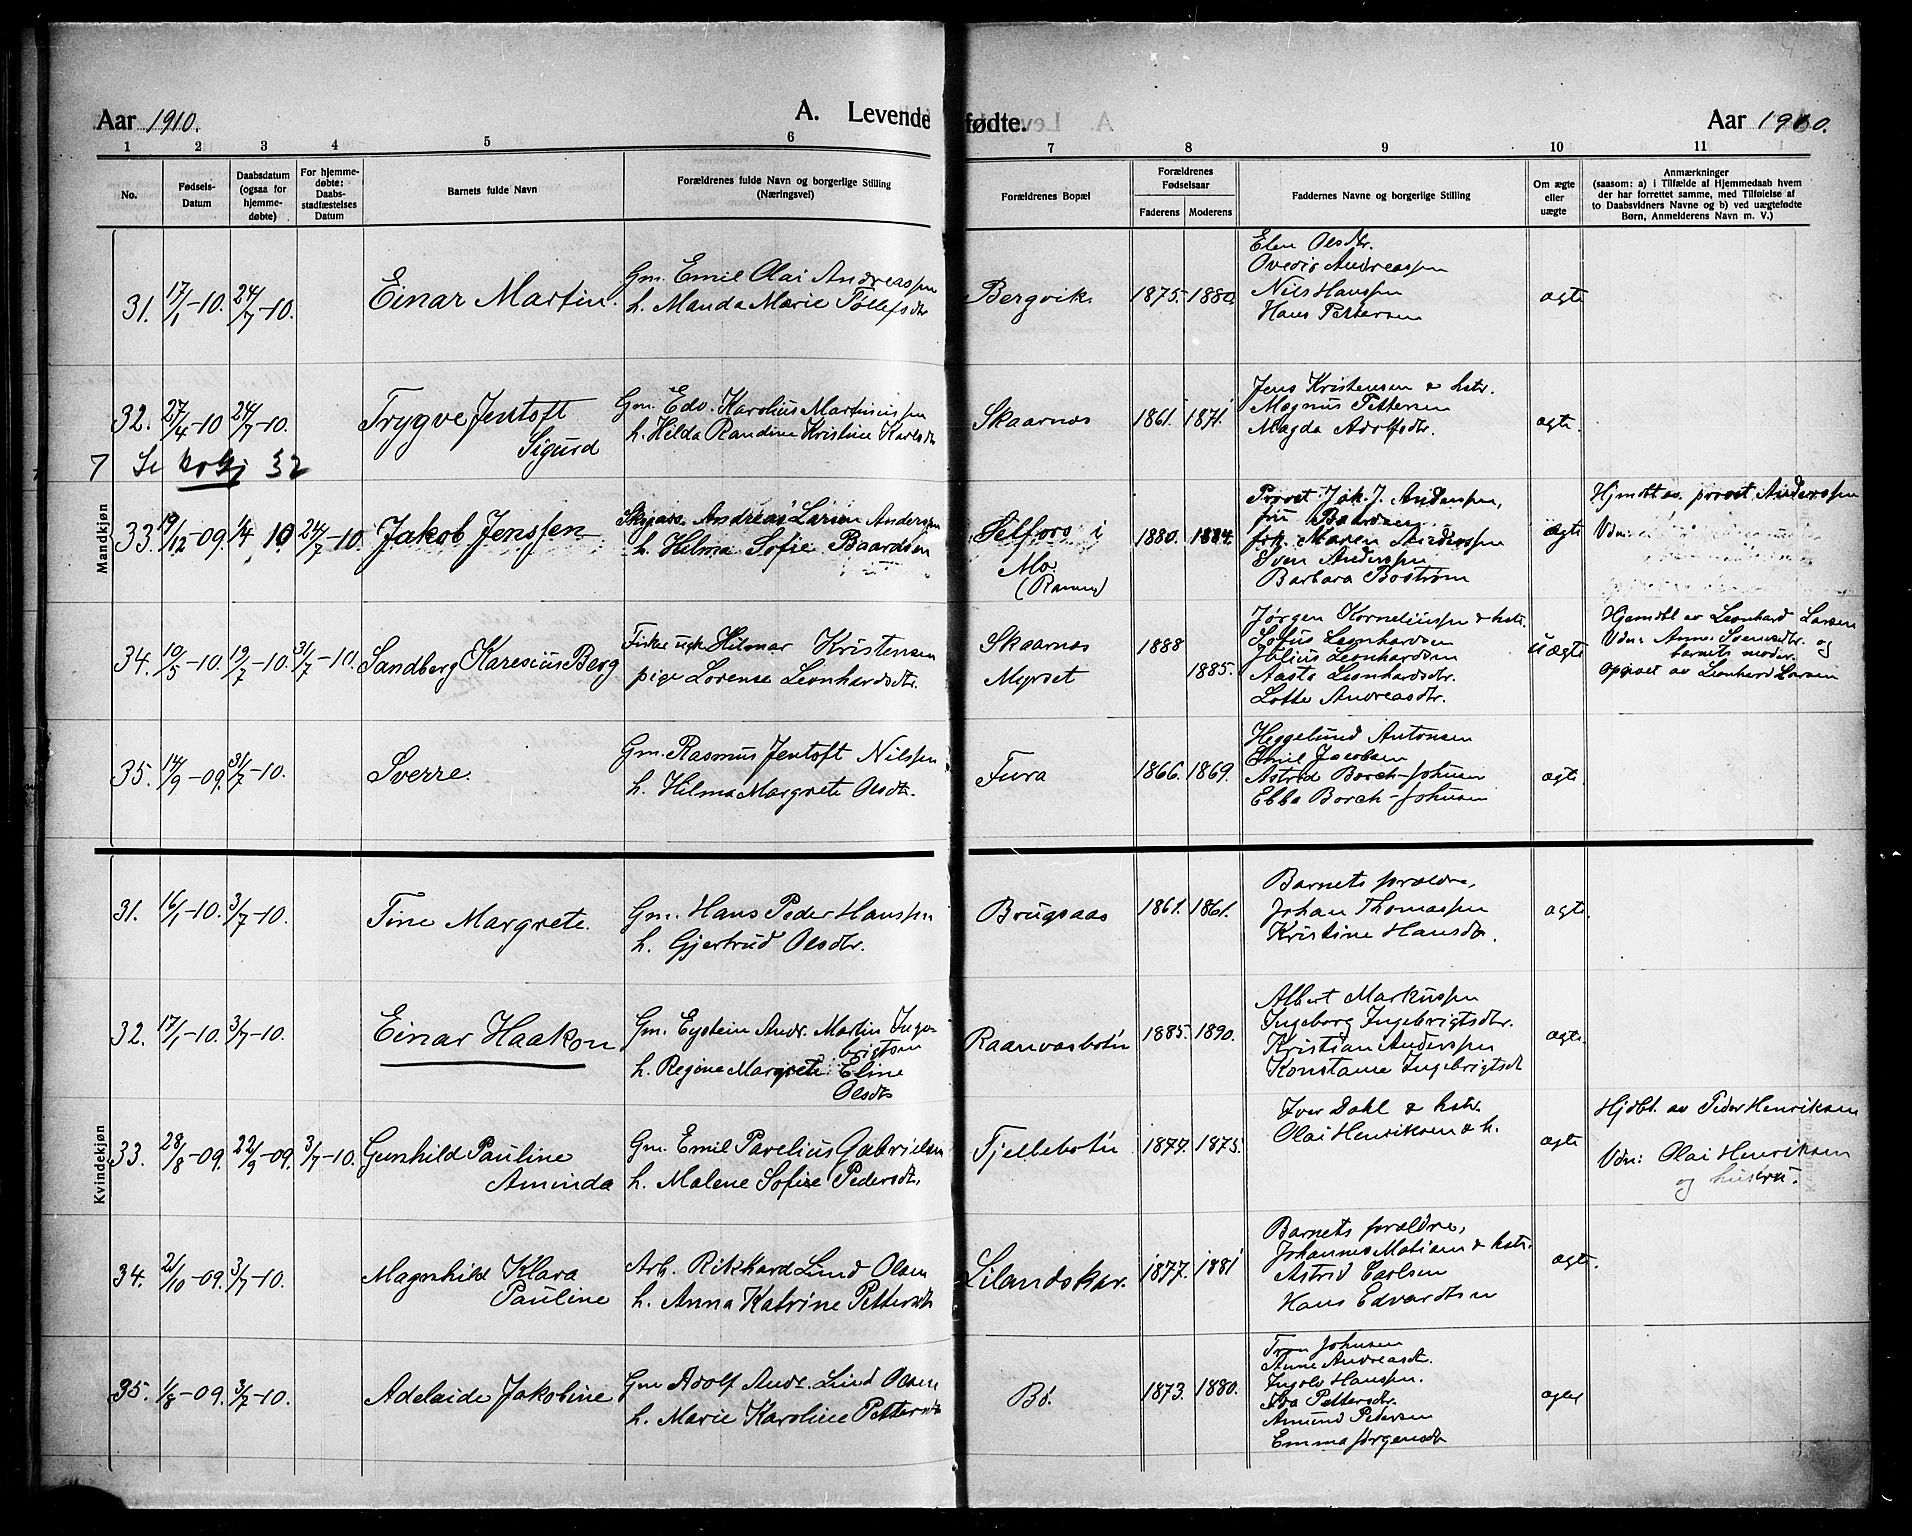 Aar 1910.
A. Levende fødte.
Aar 1910.
1 2 3 4 5 6 7 8 9 10 11
No.
Fødsels-
Datum
Daabsdatum
(ogsaa for
hjemme-
døbte)
For hjemme-
døbte:
Daabs-
stadfæstelses
Datum
Barnets fulde Navn
Forældrenes fulde Navn og borgerlige Stilling
(Næringsvei)
Forældrenes Bopæl
Forældrenes
Fødselsaar
Faderens
Moderens
Faddernes Navne og borgerlige Stilling
Om ægte
eller
uægte
Anmærkninger
(saasom: a) i Tilfælde af Hjemmedaab hvem
der har forrettet samme, med Tilføielse af
to Daabsvidners Navne og b) ved uægtefødte
Børn, Anmelderens Navn m. V.)
Mandkjøn
31. 17/1-10. 24/7-10. Einar Martin.
Gm. Emil Olai Andreassen
h. Manda Marie Tollefsdtr
Bergvik 1875. 1880.
Elen Olsdtr.
Ovedie Andreassen
Nils Hanssen
Hans Pettersen
ægte
32. 27/4-10 24/7-10. Trygve Jentoft
Sigurd
Gm. Edv. Karolius Martinussen
h. Hilda Randine Kristine Karlsdtr
Skaarnes 1861. 1871.
Jens Kristensen & hstr.
Magnus Pettersen
Magda Adolfsdtr.
ægte.
7 Se 32
33. 19/12-09. 1/4 10 24/7-10. Jakob Jenssen
Andreas Larsen Anderssen
h. Hilma Sofie Baardsen
Selfors i
Mo
(Ranen)
1880. 1884.
Provst Jak. J. Anderssen,
fru Baardsen
frk. Maren Anderssen
Sven Anderssen
Barbara Bostrøm
ægte
Hjmdbt av provst Anderssen
Vdn:
34. 10/5-10. 19/7-10. 31/7-10. Sandberg Karesius Berg
Fisker ugk Hilmar Kristensen
pige Lorense Leonhardsdtr.
Skaarnes
Myrset
1888
1885.
Jørgen Korneliussen & hstr.
Sofus Leonhardsen
Julius Leonhardsen
Aasta Leonhardsdtr.
Lotte Andreasdtr.
uægte
Hjemdbt av Leonhard Larsen
Vdn: Anne Svensdtr. og
barnets moder.
Opgivet av Leonhard Larsen
35. 14/9-09. 31/7-10. Sverre.
Gm. Rasmus Jentoft Nilssen
h. Hilma Margrete Olsdtr.
Fura 1866. 1869.
Heggelund Antonsen
Emil Jacobsen
Astrid Borch-Johnsen
Ebba Borch-Johnsen
ægte.
Kvindekjøn
31. 16/1-10. 3/7-10. Tine Margrete.
Gm. Hans Peder Hanssen
h. Gjertrud Olsdtr.
Brugsaas 1861. 1861.
Barnets forældre,
Johan Thomassen
Kristine Hansdtr.
ægte
32. 17/1-10. 3/7-10. Einar Haakon
Gm. Eystein Andr. Martin Inge-
brigtsen
h. Regine Margrete Eline
Olsdtr
Raanvasbotn 1885. 1890.
Albert Markussen
Ingeborg Ingebrigtsdtr.
Kristian Anderssen
Konstanse Ingebrigtsdt
ægte.
33. 28/8-09. 22/9-09. 3/7-10. Gunhild Pauline
Aminda
Gm. Emil Parelius Gabrielsen
h. Malene Sofie Pedersdtr.
Fjellebotn 1877. 1875.
Iver Dahl & hstr.
Olai Henriksen & h.
ægte
Hjdbt. av Peder Henriksen
Vdn: Olai Henriksen
og hustru.
34. 21/10-09. 3/7-10. Magnhild Klara
Pauline
Arb. Rikhard Lind Olsen
h. Anna Katrine Pettersdtr
Lilandskar. 1877. 1881
Barnets forældre,
Johannes Matisen & hstr.
Astrid Carlsen
Hans Edvardsen
ægte.
35. 1/8-09. 3/7-10. Adelaide Jakobine
Gm Adolf Andr. Lind Olsen
h. Marie Karoline Pettersdtr
Bø. 1873. 1880.
Tron Johnsen
Anne Andreasdtr.
Ingolv Hanssen.
Eva Pettersdtr.
Amund Pedersen
Emma Jørgensdtr
ægte